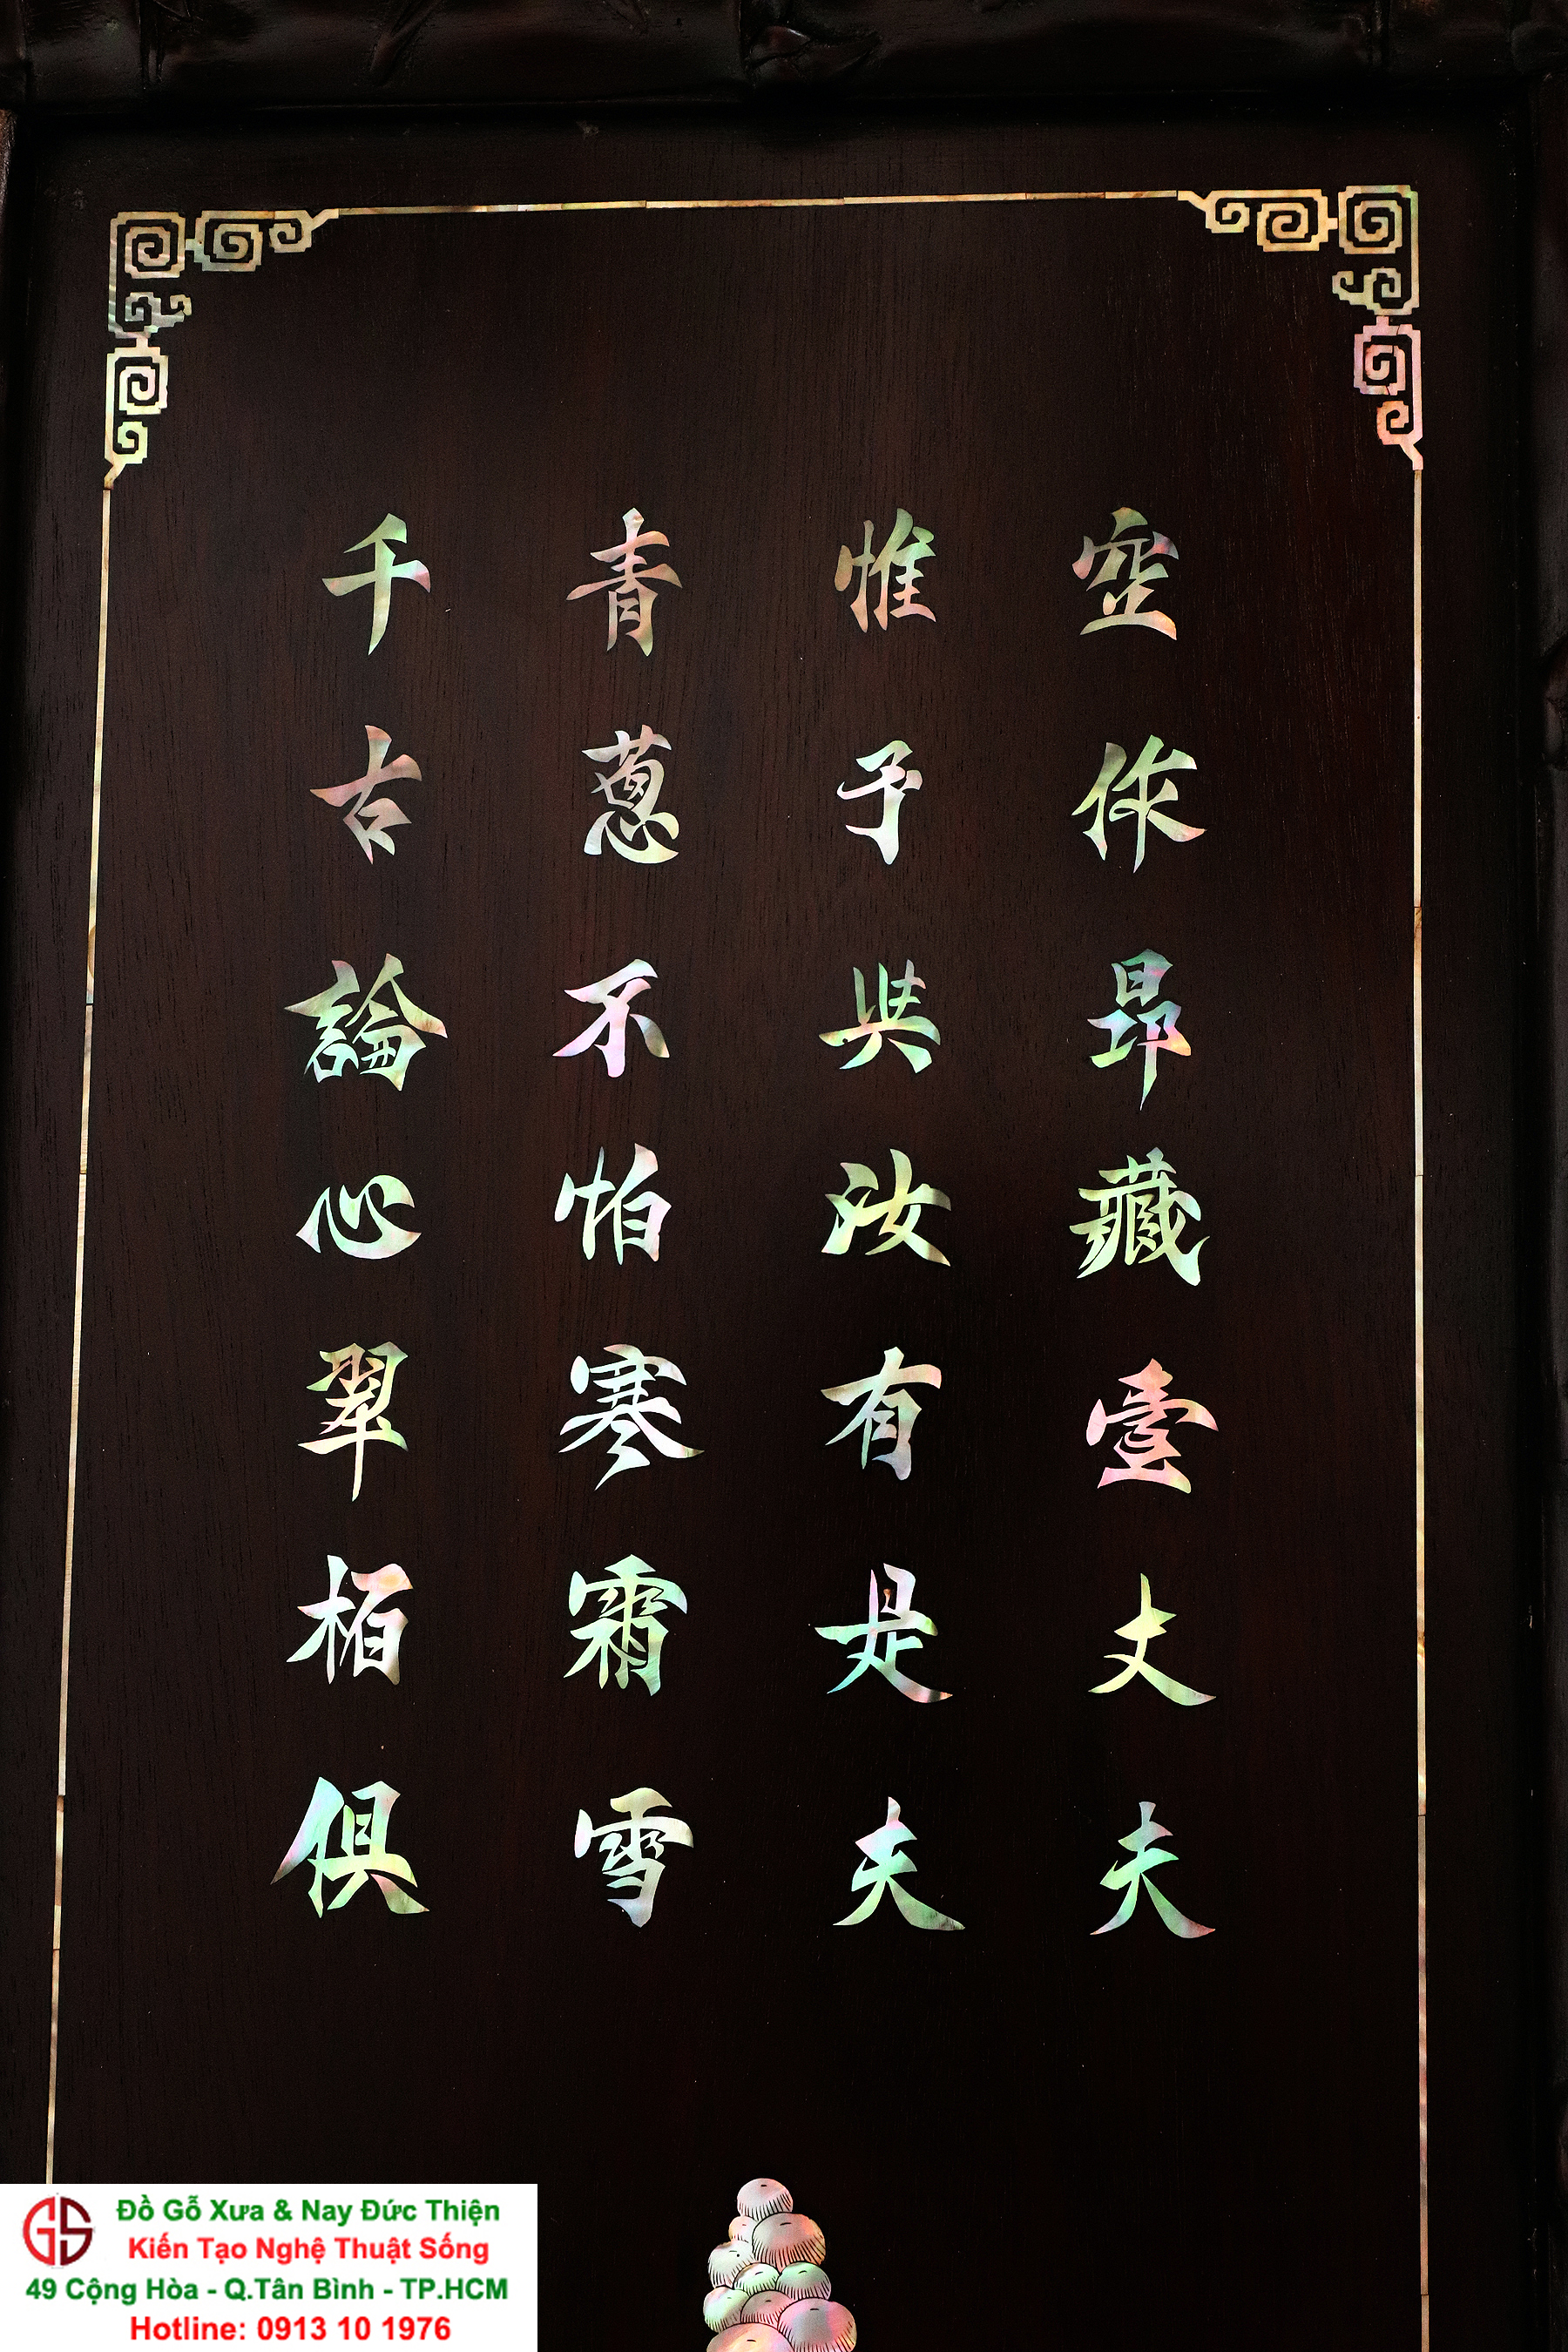 空作昂藏壹丈夫
惟予與汝有是夫
青蔥不怕寒霜雪
千古論心翠栢俱
GS
Đồ Gỗ Xưa & Nay Đức Thiện
Kiến Tạo Nghệ Thuật Sống
49 Cộng Hòa - Q.Tân Bình - TP.HCM
Hotline: 0913 10 1976